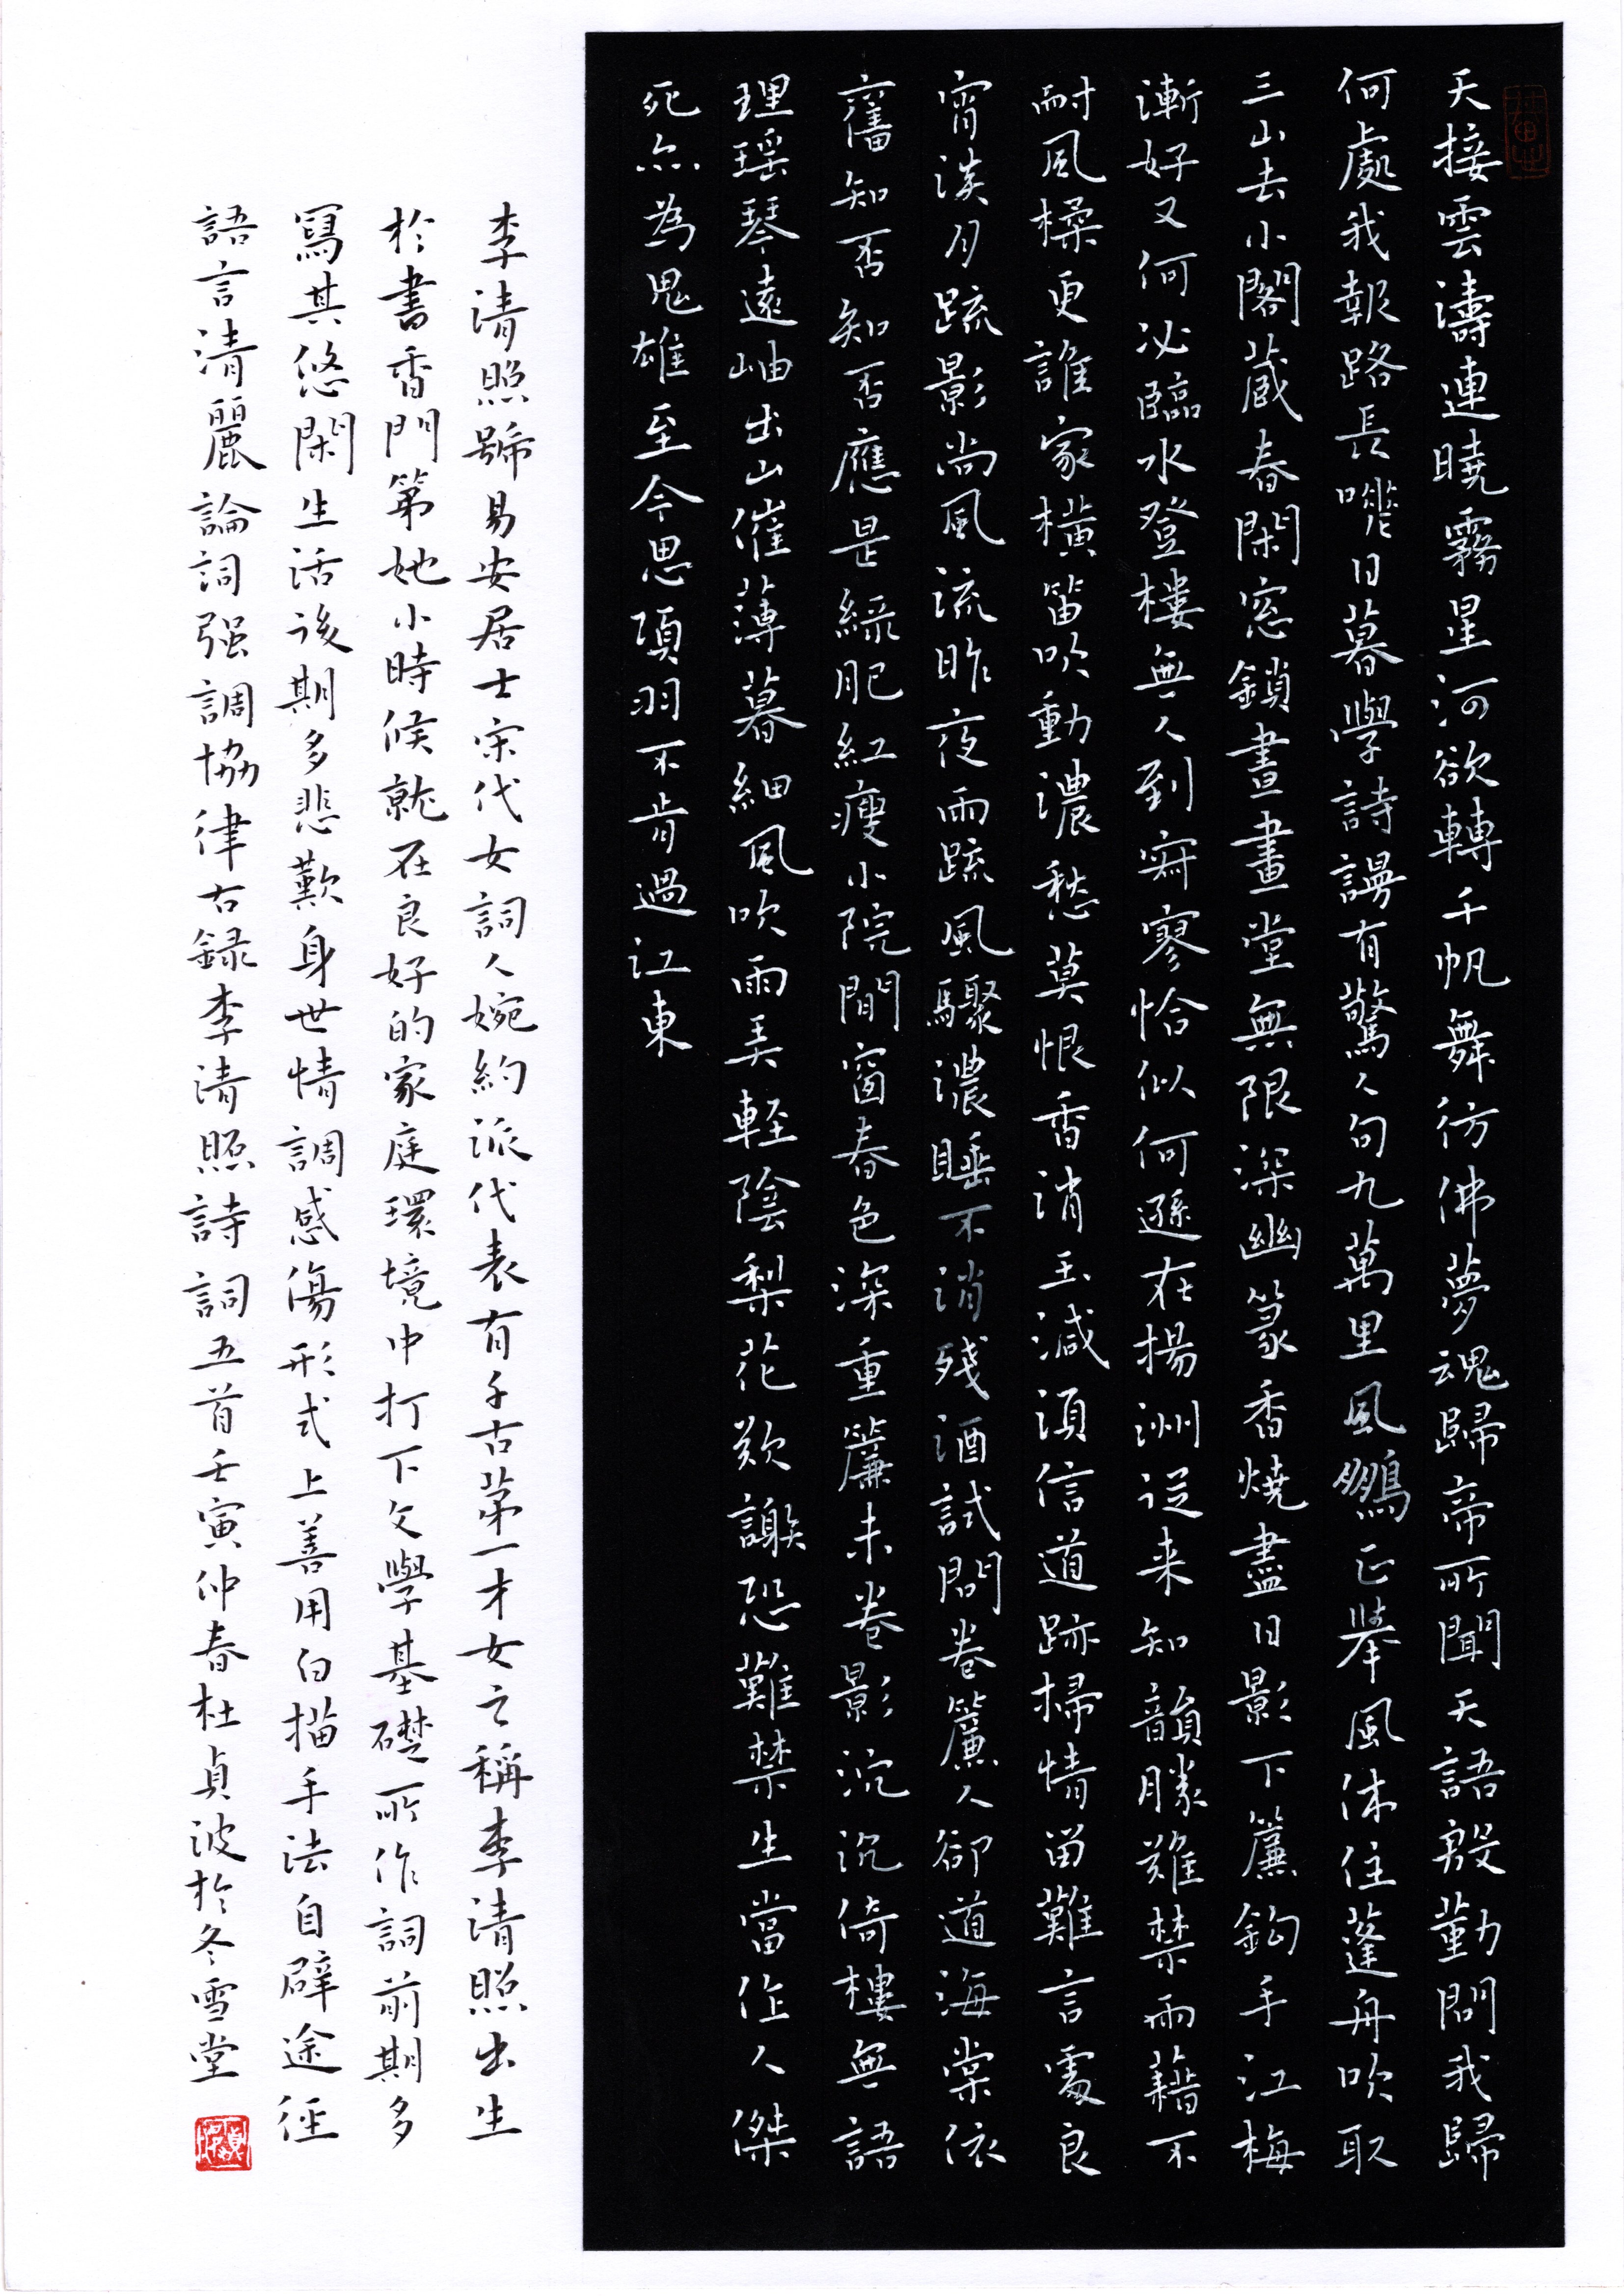 天接雲濤連曉霧星河欲轉千帆舞彷彿夢魂歸帝所聞天語殷勤問我歸
何處我報路長嗟日暮學詩謾有驚人句九萬里風鵬正舉風休住蓬舟吹取
三山去小閣藏春閑窓鎖晝畫堂無限深幽篆香燒盡日影下簾鈎手江梅
漸好又何必臨水登樓無人到寂寥恰似何遜在揚洲從来知韻勝難禁雨藉不
耐風橾更誰家橫笛吹動濃愁莫恨香消玉減須信道跡掃情留難言處良
宵淡月疏影尚風流昨夜雨疏風驟濃睡不消殘酒試問卷簾人卻道海棠依
舊知否知否應是綠肥紅瘦小院閒窗春色深重簾未卷影沉沉倚樓無語
理瑤琴遠岫出山催薄暮細風吹雨弄輕陰梨花欲謝恐難禁生當作人傑
死亦為鬼雄至今思項羽不肯過江東
李清照號易安居士宋代女詞人婉約派代表有千古第一才女之稱李清照出生
於書香門第她小時候就在良好的家庭環境中打下文學基礎所作詞前期多
寫其悠閑生活後期多悲歎身世情調感傷形式上善用白描手法自辟途徑
語言清麗論詞强調協律古録李清照詩詞五首壬寅仲春杜貞波於冬雪堂